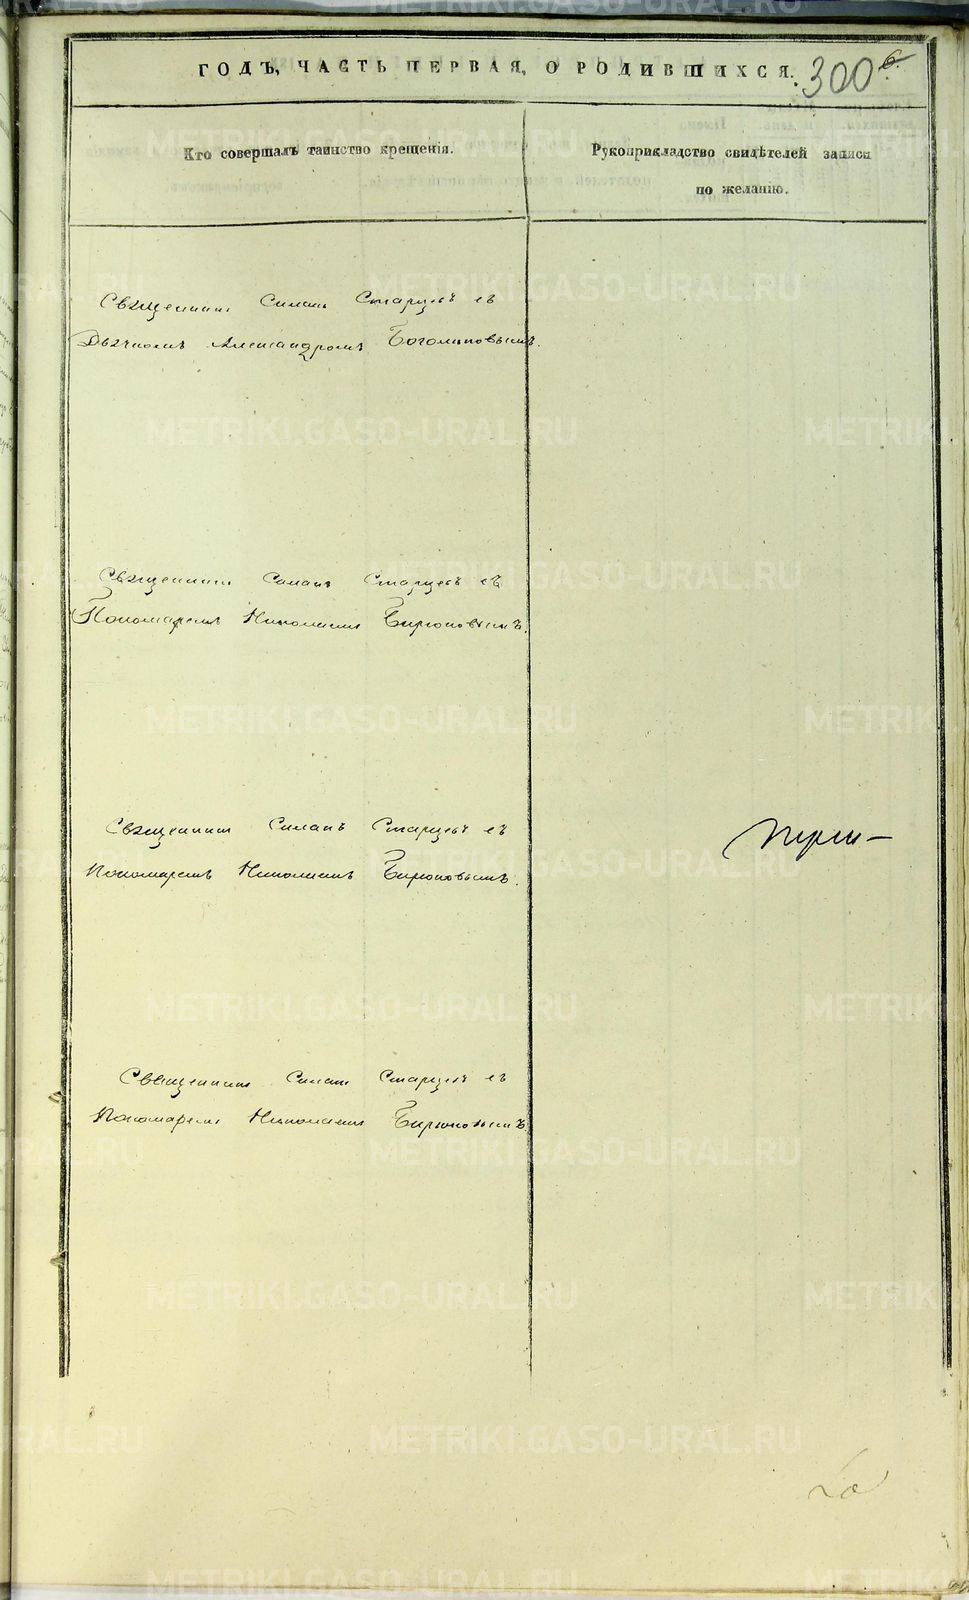 ГОДЪ, ЧАСТЬ ПЕРВАЯ, О РОДИВШИХСЯ.
300
Кто совершалъ таинство крещенія.
Рукоприкладство свидѣтелей записи
по желанію.
Священникъ Силанъ Старцевъ съ
Дьячкомъ Александромъ Боголиповымъ.
Священникъ Силанъ Старцевъ съ
Пономаремъ Николаемъ Бирюковымъ.
Священникъ Силанъ Старцевъ съ
Пономаремъ Николаемъ Бирюковымъ.
Священникъ Силанъ Старцевъ съ
Пономаремъ Николаемъ Бирюковымъ.
METRIKI.GASO-URAL.RU